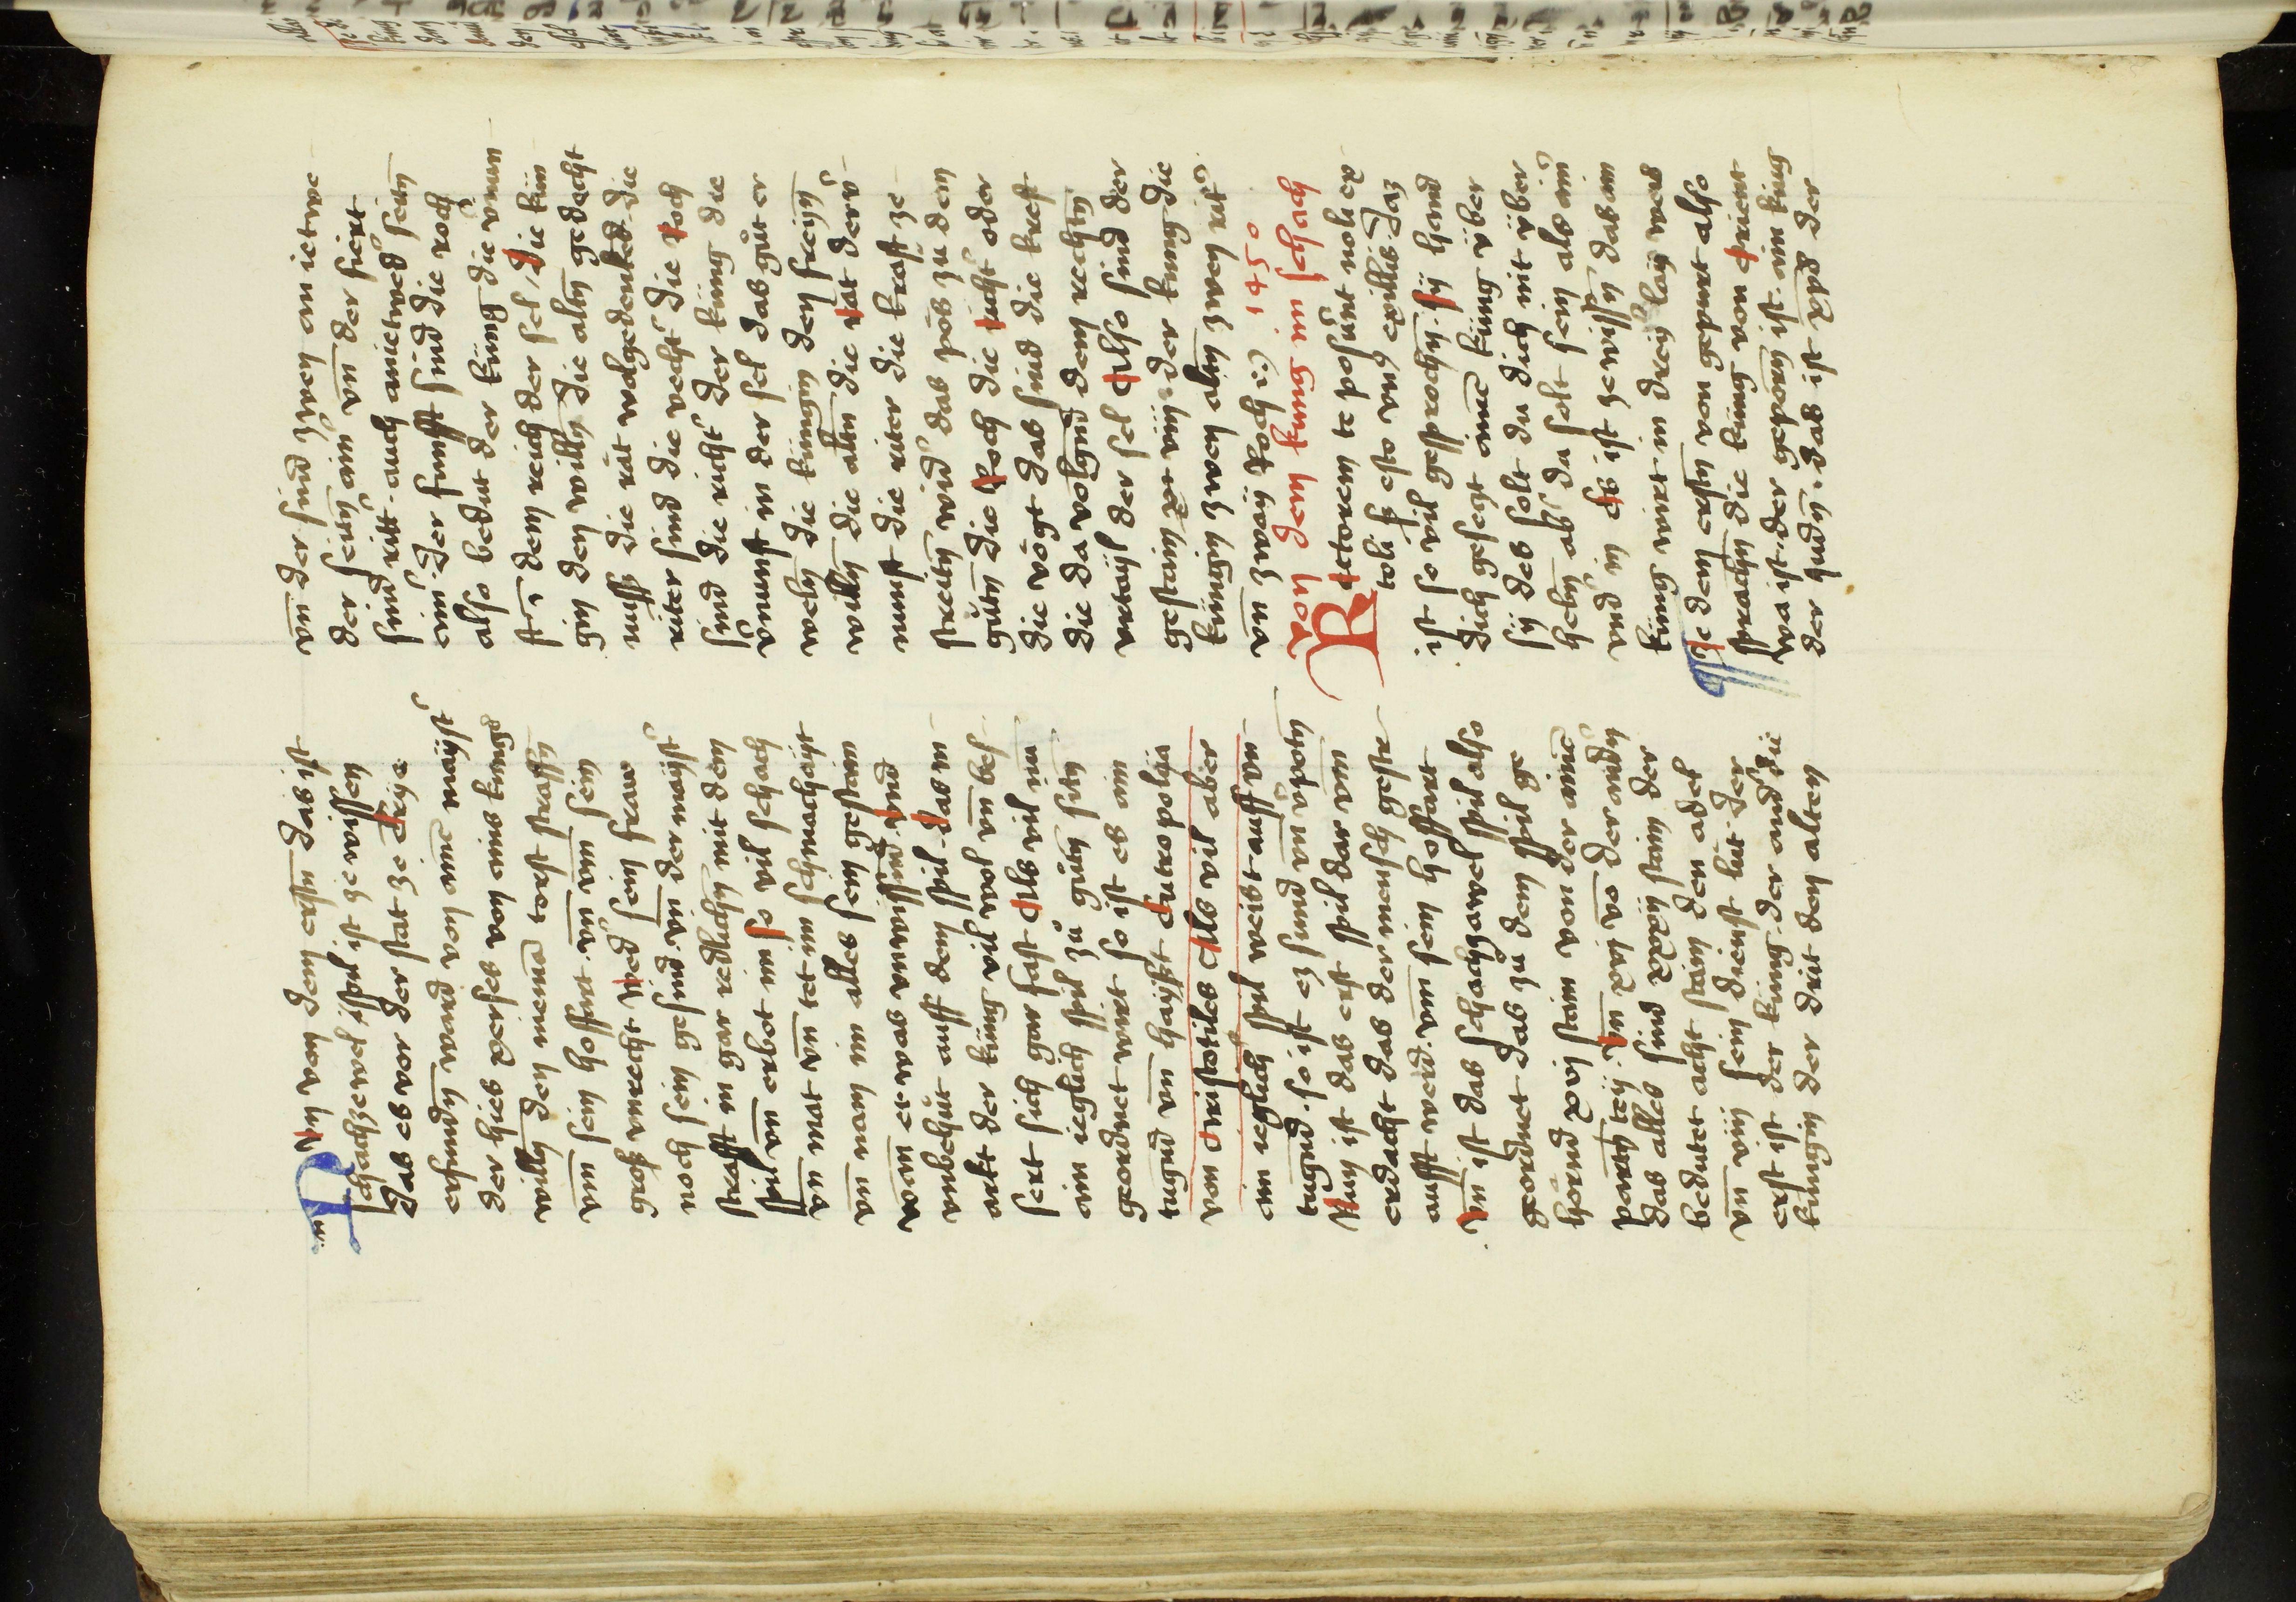 Nun von dem erstn̄ das ist
schachzewel spil ist ze wissen
das es vor der stat ze Troya
erfundn̄ ward von aine͞ mayst͛
der hies xerses von ains kungs
willn̄ den nieman͞d torst straffn̄
vm̄ sein hoffart · vn̄ vm̄ sein
gross vnrecht Wed͛ sein fraw
noch sein gesind · vn̄ der mayst͛
strafft in gar redlichn̄ mit dem
spil vn̄ erbot im so vil schach
vn̄ mat vn̄ tet im schmachayt
vn̄ nam im alles sein gestain
wan̄ er was vnwissend vnd
vnbehůt auff dem spil · das m
arkt der küng vil wol vn̄ bes
sert sich gar fast Als vil nu
ain ieglich spil zů gůtn̄ sitn̄
geordnet wirt so ist es ain
tugnd vn̄ haysst Eutropolia
von Aristotiles Als vil aber
ain ieglich spil weist auff vn
tugnd · so ist ez sund vn̄ v͛potn̄
Nun ist das erst spil dar vm̄
erdacht das der mensch gestr
aufft werd · vm̄ sein hoffart
Vn̄ ist das schachzawel spil also
geordnet das zů dem spil ge
hörnd xvj stain von der aine͞
partn̄ teÿ · Vn̄ xvj vo der and͛n
das alles sind xxxij stain der
bedutet acht stain den adel
vn̄ viij sein dienst lüt · der
erst ist der küng · der and͛ die
kungin der drit den alten
vn̄ der sind zwen an ietwe
der seitn̄ ain͛ vn̄ der fiert
sind ritt͛ · auch anietwed͛ seitn̄
ain͛ · Der funfft sind die roch
also bedut der küng die v͛nun
ft in dem reich der sel / Die kün
gin den willn̄ die altn̄ gedacht
nuss die rät wolgedenked · die
riter sind die vecht͛ die roch
sind die richt͛ der küng die
v͛nunft in der sel das gůt er
weln̄ die küngin den freyn̄
willn̄ die altn̄ die rät der v͛
nunft die riter die kraft ze
streitn̄ wid͛ das pös zu dem
gůtn̄ die Roch die richt͛ oder
die vögt das sind die kreft
die da volgnd dem rechtn̄
vrtayl der sel Also sind der
gestain viij · der kung die
küngin zwen altn̄ zwen rit͛
vn̄ zway Roch :) 1450
Von dem kung im schach
Rectorem te posu͞nt noli ex
tolli s͞ esto vn͛ ex illis Daz
ist so vil gesprochn̄ · Sy hand
dich gesetzt aine͞ küng vber
sy des solt du dich nit vber
hebn̄ ab͛ du solt sein als ain͛
vnd͛ in Es ist ze wissn̄ das ain
küng wirt in dreyer lay weis
Ze dem erstn̄ von gepurt also
sprachn̄ die küng von Orient
wa ist · der geporn̄ ist · ain küng
der Judn̄ · das ist xpus der